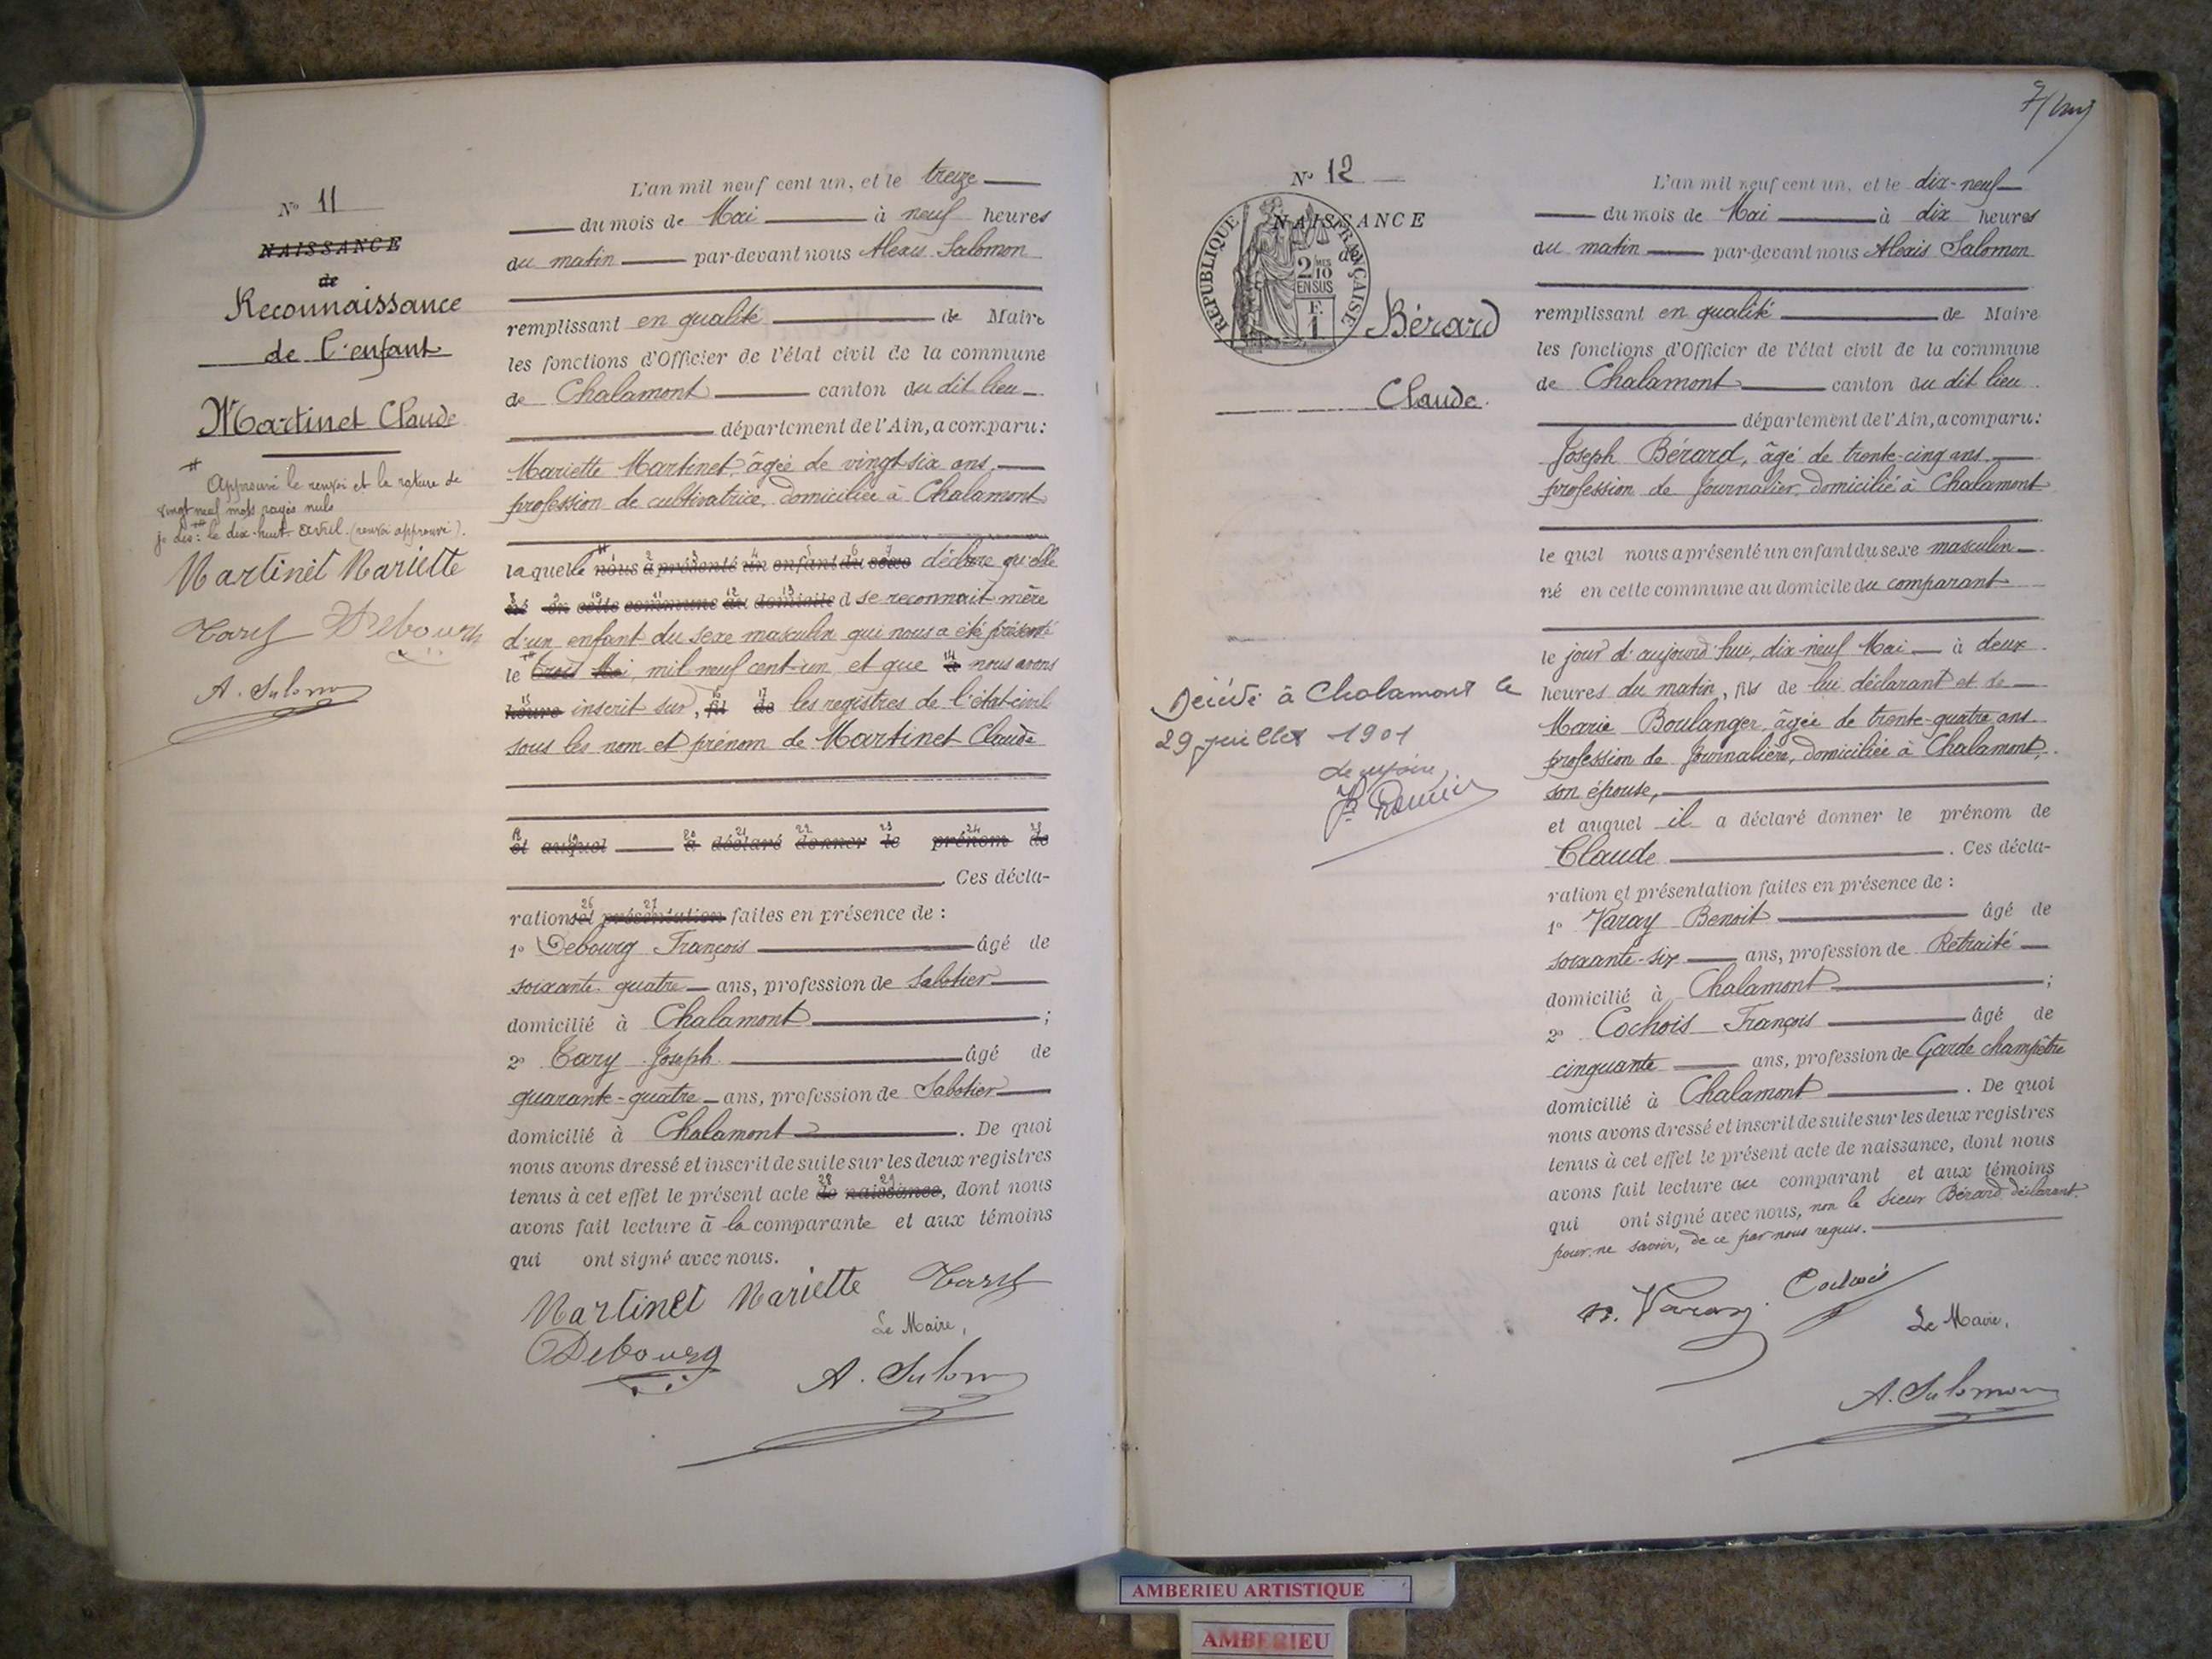 N° 11
NAISSANCE
de
Reconnaissance
de l'enfant
Martinet Claude
Approuvé le renvoi et la rature de
vingt neuf mots rayés nuls
je dis : le dix-huit avril (renvoi approuvé).
Martinet Mariette
Tary Debourg
A. Salomon
L'an mil neuf cent un, et le treize
du mois de Mai à neuf heures
du matin par-devant nous Alexis Salomon
remplissant en qualité de Maire
les fonctions d'Officier de l'état civil de la commune
de Chalamont canton du dit lieu
département de l'Ain, a comparu :
Mariette Martinet, âgée de vingt-six ans,
profession de cultivatrice, domiciliée à Chalamont
laquelle nous a présenté un enfant du sexe déclare qu'elle
né en cette commune au domicile d se reconnait mère
d'un enfant du sexe masculin qui nous a été présenté
le trois Mai, mil neuf cent-un et que à nous avons
heure inscrit sur, fil de les registres de l'état-civil
sous les nom et prénom de Martinet Claude
et auquel a déclaré donner le prénom de
. Ces décla-
rations et présentation faites en présence de :
1° Debourg François âgé de
soixante-quatre ans, profession de Sabotier
domicilié à Chalamont ;
2° Tary Joseph âgé de
quarante-quatre ans, profession de Sabotier
domicilié à Chalamont . De quoi
nous avons dressé et inscrit de suite sur les deux registres
tenus à cet effet le présent acte de naissance, dont nous
avons fait lecture à la comparante et aux témoins
qui ont signé avec nous.
Martinet Mariette Tary
Le Maire,
Debourg
A. Salomon
N° 12
NAISSANCE
de
RÉPUBLIQUE FRANÇAISE
2 MES
10
EN SUS
F.
1
Bérard
Claude.
Décédé à Chalamont le
29 juillet 1901
L'an mil neuf cent un, et le dix-neuf
du mois de Mai à dix heures
du matin par-devant nous Alexis Salomon
remplissant en qualité de Maire
les fonctions d'Officier de l'état civil de la commune
de Chalamont canton du dit lieu
département de l'Ain, a comparu :
Joseph Bérard, âgé de trente-cinq ans
profession de Journalier, domicilié à Chalamont
le quel nous a présenté un enfant du sexe masculin
né en cette commune au domicile du comparant
le jour d'aujourd'hui, dix neuf Mai à deux
heures du matin, fils de lui déclarant et de
Marie Boulanger, âgée de trente-quatre ans
profession de Journalière, domiciliée à Chalamont,
son épouse,
et auquel il a déclaré donner le prénom de
Claude . Ces décla-
ration et présentation faites en présence de :
1° Varay Benoit âgé de
soixante-six ans, profession de Retraité
domicilié à Chalamont ;
2° Cochois François âgé de
cinquante ans, profession de Garde champêtre
domicilié à Chalamont . De quoi
nous avons dressé et inscrit de suite sur les deux registres
tenus à cet effet le présent acte de naissance, dont nous
avons fait lecture au comparant et aux témoins
qui ont signé avec nous, non le sieur Bérard déclarant
pour ne savoir, de ce par nous requis.
B. Varay. Cochois
Le Maire,
A. Salomon
AMBERIEU ARTISTIQUE
AMBERIEU